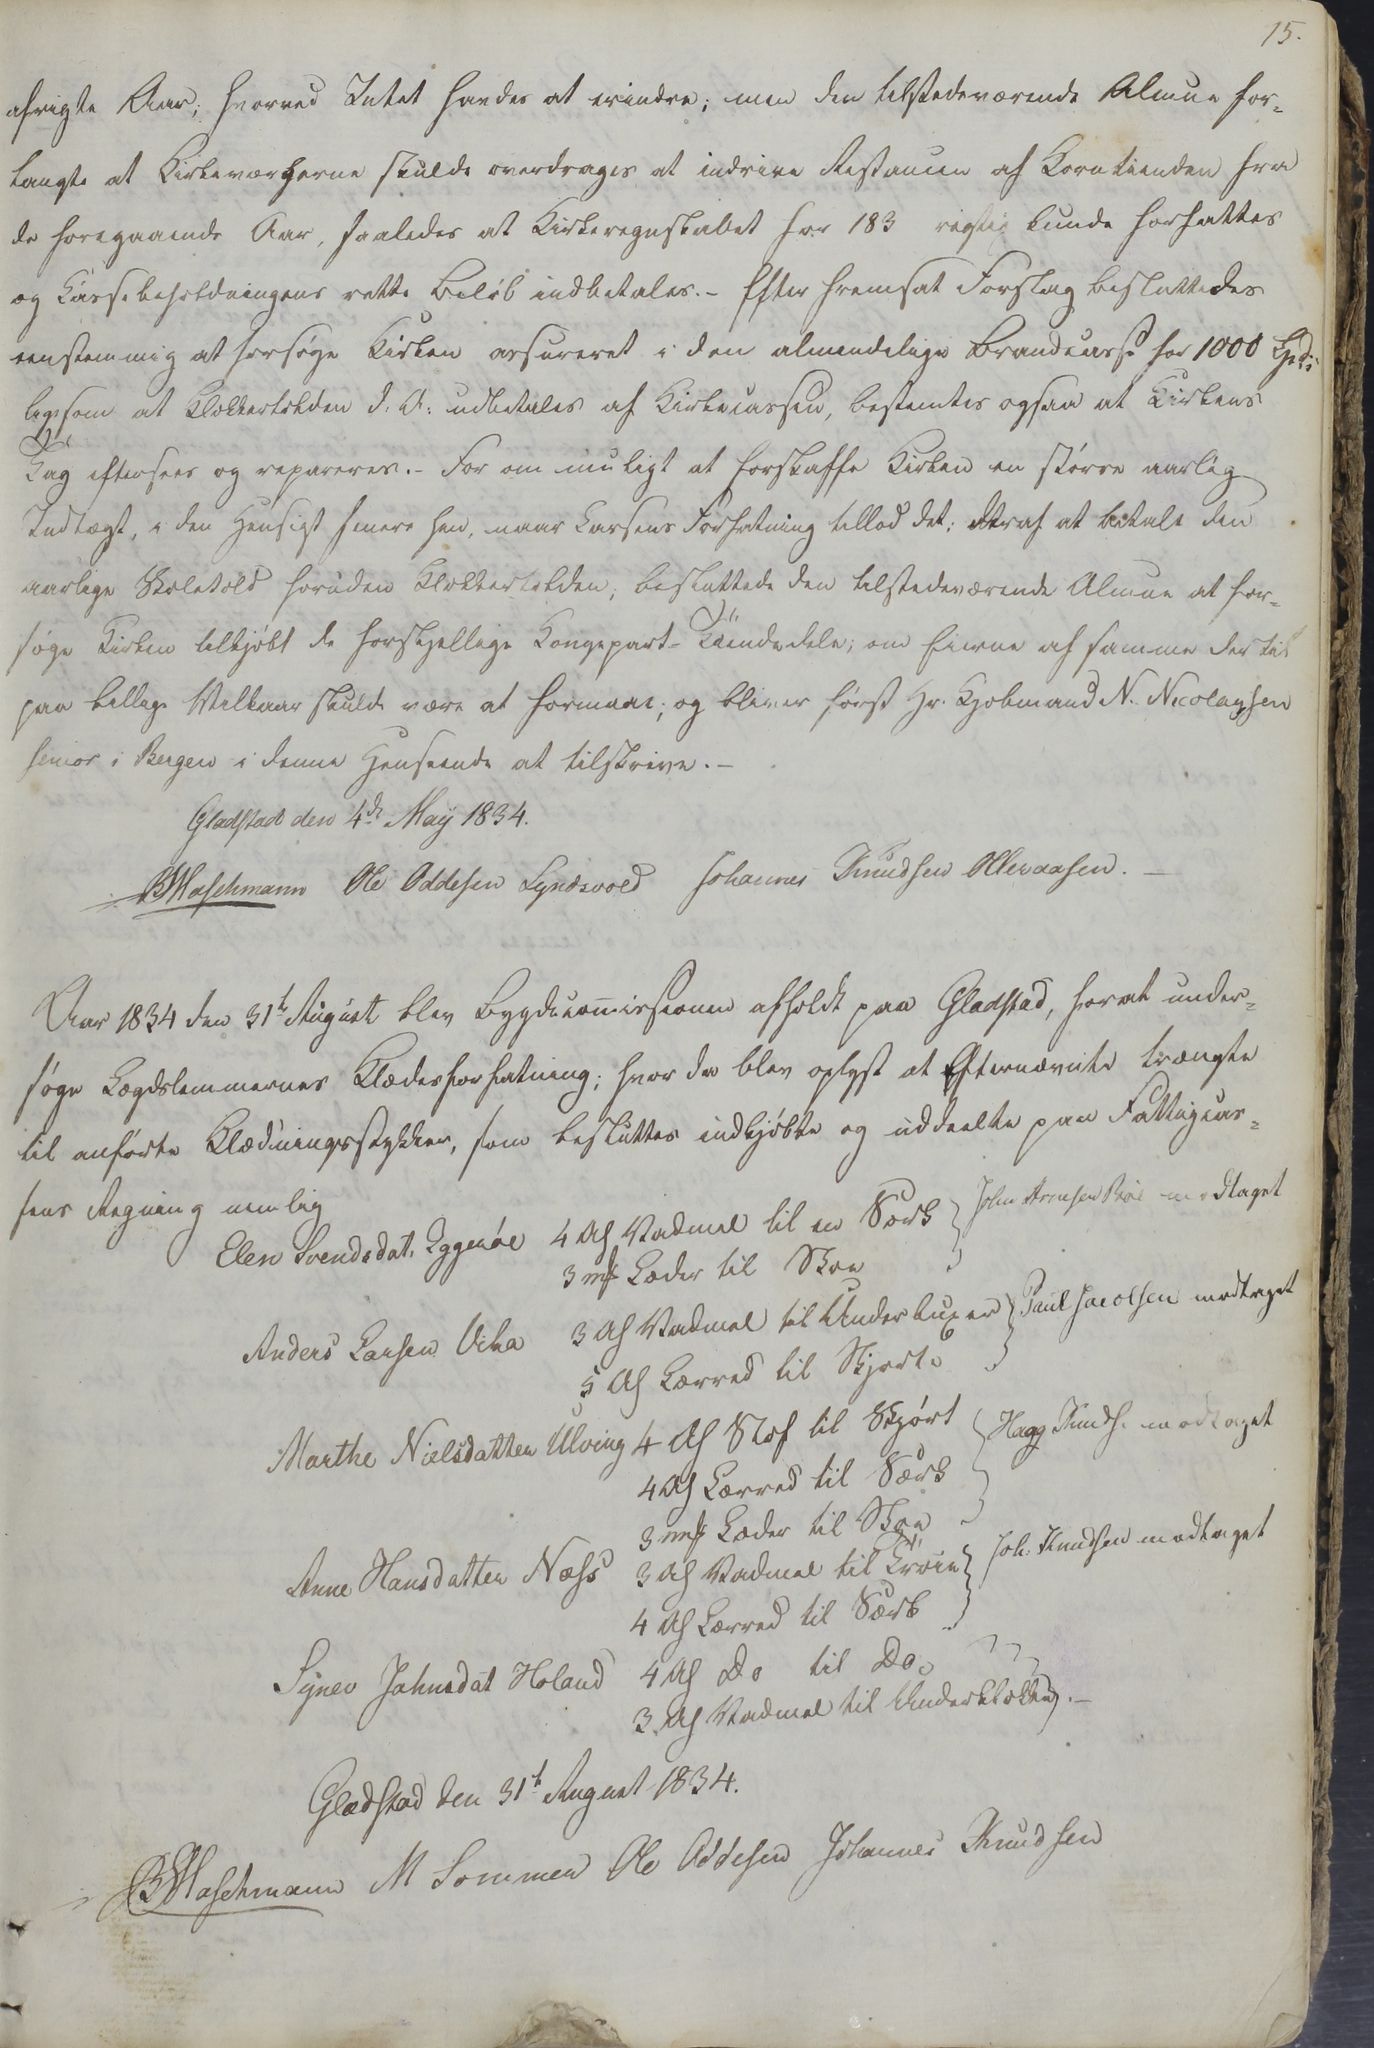 15.
afvigte Aar; hvorved Intet havdes at erindre; men den tilstedeværende Almue for-
langte at Kirkeværgerne skulde overdrages at indrive Restancen af Korntienden fra
de foregaaende Aar, saaledes at Kirkeregnskabet for 183 rigtig kunde forfattes
og Kassebeholdningens rette Beløb indbetales.- Efter fremsat Forslag besluttedes
eenstemmig at forsøge Kirken assureret i den almindelige Brandcasse for 1000 Spd;
ligesom at Klokkertolden d. A. udbetales af Kirkecassen, bestemtes ogsaa at Kirkens
Tag eftersees og repareres.- For om muligt at forskaffe Kirken en større aarlig
Indtægt, i den Hensigt senere hen, naar Cassens Forfatning tillod det; deraf at betale den
aarlige Skoletold foruden Klokkertolden, besluttede den tilstedeværende Almue at for-
søge Kirken tilkjøbt de forskjellige Kongepart-Tiendedele; om Eierne af samme dertil
paa billige Vilkaar skulde være at formaae; og bliver først Hr. Kjøbmand N. Nicolaysen
senior i Bergen i denne Henseende at tilskrive.-
Gladstad den 4de Maij 1834.
BMaschmann Ole Oddesen Synæsvold Johannes Knudsen Olleraasen.-
Aar 1834 den 31t August blev Bygdecommissionen afholdt paa Gladstad, for at under-
søge Lægdslemmernes Klædesforfatning; hvor da blev oplyst at Efternævnte trængte
til anførte Klædningsstykker, som besluttes indkjøbte og uddeelte paa Fattigcas-
sens Regning nemlig
Elen Svendsdat. Eggenøe 4 Al Vadmel til en Særk } John Arentsen modtaget
3 mk Læder til Skoe
Anders Larsen Vika 3 Al Vadmel til Underbuxer } Paul Jacobsen modtaget
5 Al Lærred til Skjorte
Marthe Nielsdatter Ulving 4 Al Stof til Skjørt } Hagg Knuds. modtaget
4 Al Lærred til Særk
3 mk Læder til Skoe
Anne Hansdatter Næss 3 Al Vadmel til Trøie } Joh. Knudsen modtaget
4 Al Lærred til Særk
Synev Jahnsdat Holand 4 Al Do til Do.
3 Al Vadmel til Underklokke.-
Gladstad den 31t August 1834.
BMaschmann M Sommer Ole Oddesen Johannes Knudsen